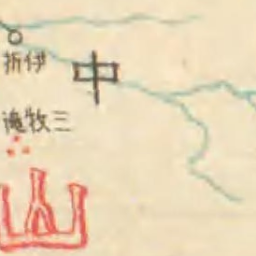 折伊
中
滝牧三
山